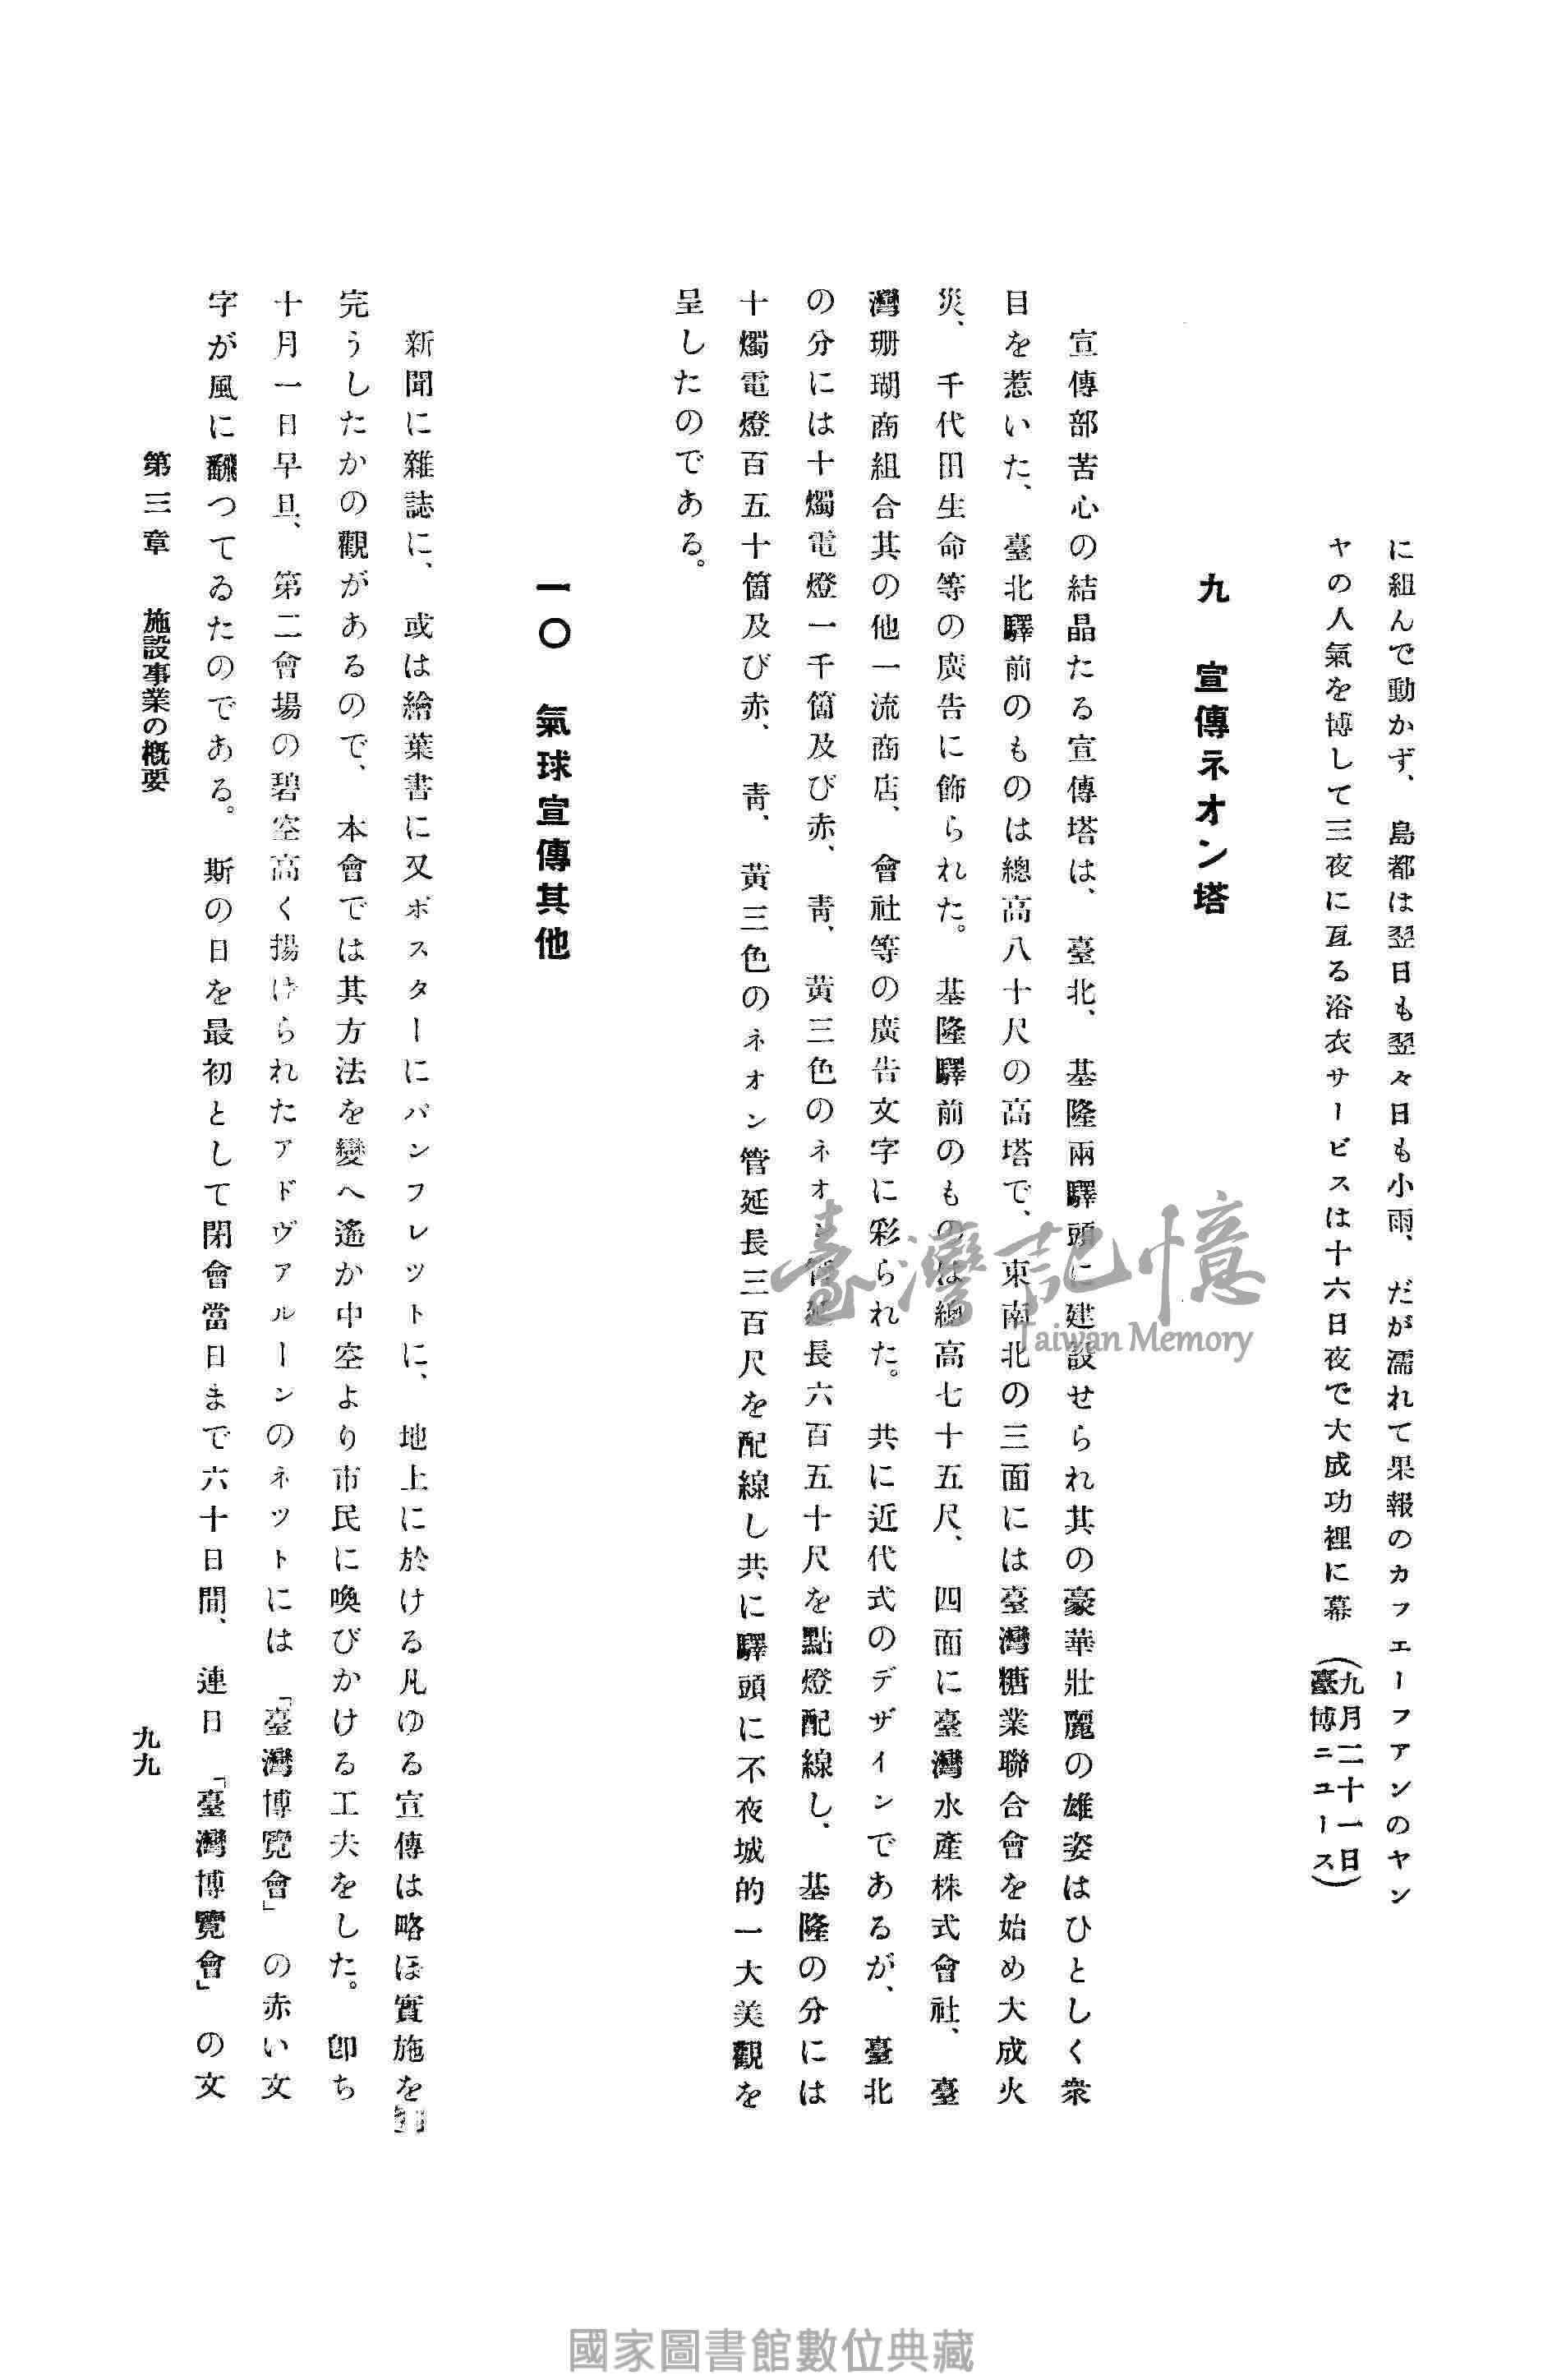 に組んで動かず、島都は翌日も翌々日も小雨、だが濡れて果報のカフエーフアンのヤン
ヤの人氣を博して三夜に亙る浴衣サービスは十六日夜で大成功裡に幕（九月二十一日
臺博ニユース）
九　宣傳ネオン塔
宣傳部苦心の結晶たる宣傳塔は、臺北、基隆兩驛頭に建設せられ其の豪華壯麗の雄姿はひとしく衆
目を惹いた、臺北驛前のものは總高八十尺の高塔で、東南北の三面には臺灣糖業聯合會を始め大成火
災、千代田生命等の廣告に飾られた。基隆驛前のものは總高七十五尺、四面に臺灣水產株式會社、臺
灣珊瑚商組合其の他一流商店、會社等の廣告文字に彩られた。共に近代式のデザインであるが、臺北
の分には十燭電燈一千箇及び赤、靑、黃三色のネオン管延長六百五十尺を點燈配線し、基隆の分には
十燭電燈百五十箇及び赤、靑、黃三色のネオン管延長三百尺を配線し共に驛頭に不夜城的一大美觀を
呈したのである。
一〇　氣球宣傳其他
新聞に雜誌に、或は繪葉書に又ポスターにパンフレットに、地上に於ける凡ゆる宣傳は略ほ實施を
完うしたかの觀があるので、本會では其方法を變へ遙か中空より市民に喚びかける工夫をした。卽ち
十月一日早旦、第二會場の碧空高く揚けられたアドヴァルーンのネットには「臺灣博覽會」の赤い文
字が風に飜つてゐたのである。斯の日を最初として閉會當日まで六十日間、連日「臺灣博覽會」の文
第三章　施設事業の概要
九九
臺灣記憶
Taiwan Memory
國家圖書館數位典藏